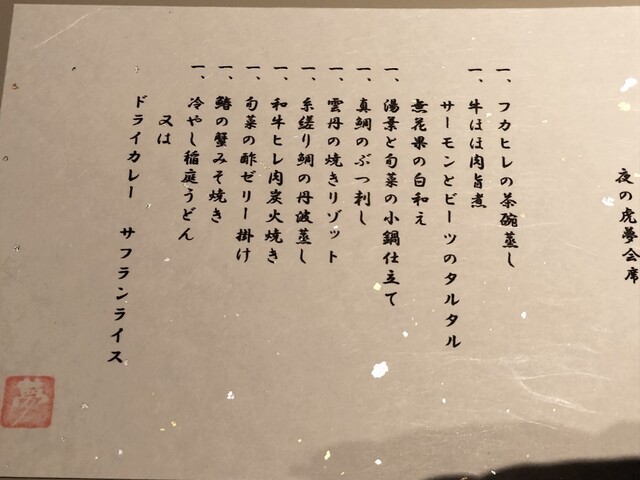 夜の虎夢会席
一、フカヒレの茶碗蒸し
一、牛ほほ肉旨煮
サーモンとビーツのタルタル
無花果の白和え
一、湯葉と旬菜の小鍋仕立て
一、真鯛のぶつ刺し
一、雲丹の焼きリゾット
一、糸縒り鯛の丹波蒸し
一、和牛ヒレ肉炭火焼き
一、旬菜の酢ゼリー掛け
一、鰆の蟹みそ焼き
一、冷やし稲庭うどん
又は
ドライカレー サフランライス
夢